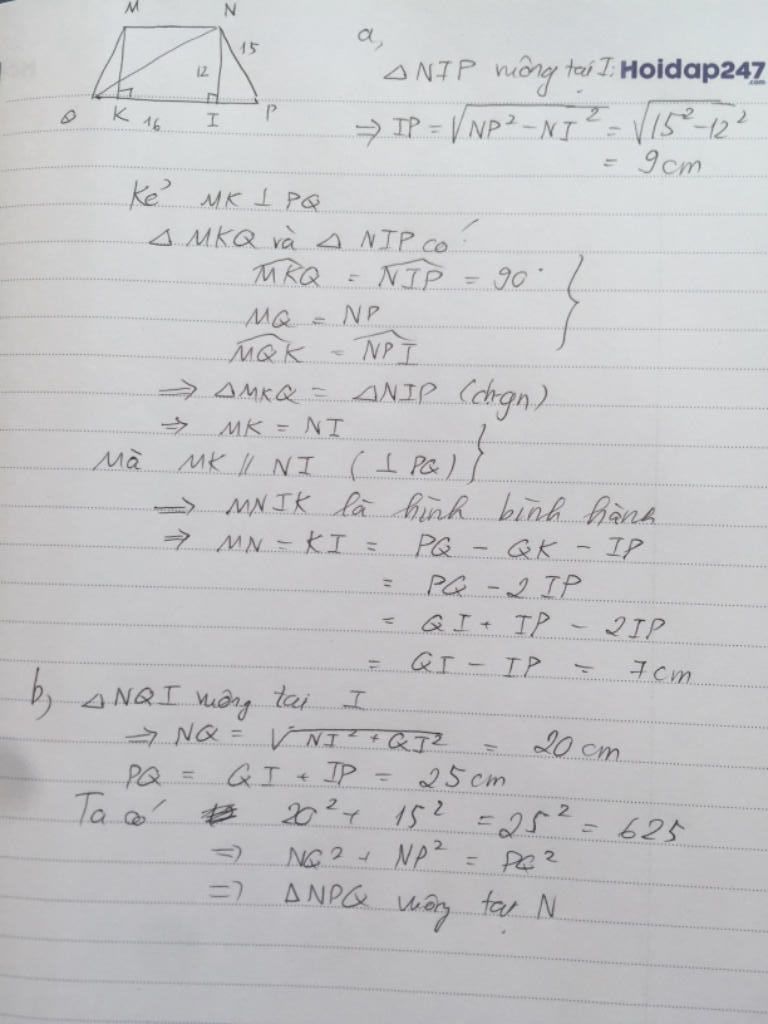 M N
15
12
Q K 16 I P
a,
△ NIP vuông tại I: Hoidap247
.com
⇒ IP = √NP² - NI² = √15² - 12²
= 9cm
Kẻ MK ⊥ PQ
△ MKQ và △ NIP có
MKQ = NIP = 90°
MQ = NP
MQK = NPI
⇒ △MKQ = △NIP (chgn)
⇒ MK = NI
Mà MK // NI (⊥ PQ)
⇒ MNIK là hình bình hành
⇒ MN = KI = PQ - QK - IP
= PQ - 2 IP
= QI + IP - 2IP
= QI - IP = 7cm
b, △NQI vuông tại I
⇒ NQ = √NI² + QI² = 20 cm
PQ = QI + IP = 25cm
Ta có 20² + 15² = 25² = 625
⇒ NQ² + NP² = PQ²
⇒ △NPQ vuông tại N